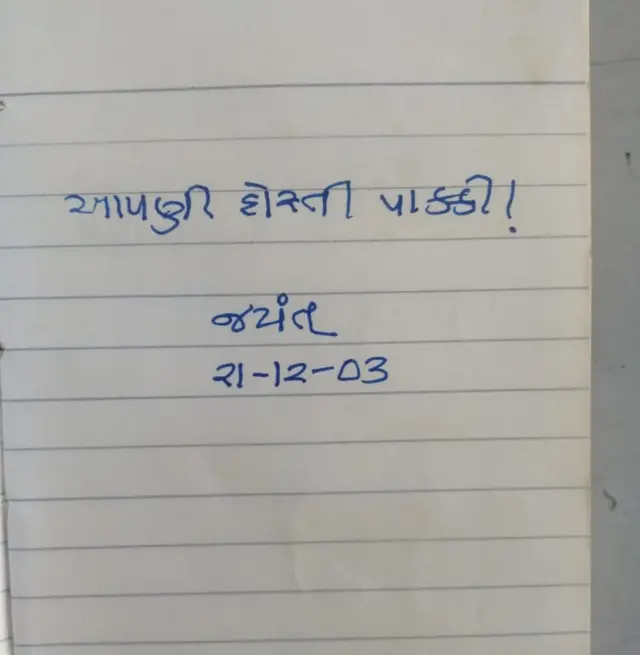 આપણી દોસ્તી પાક્કી!
જયંત
21-12-03